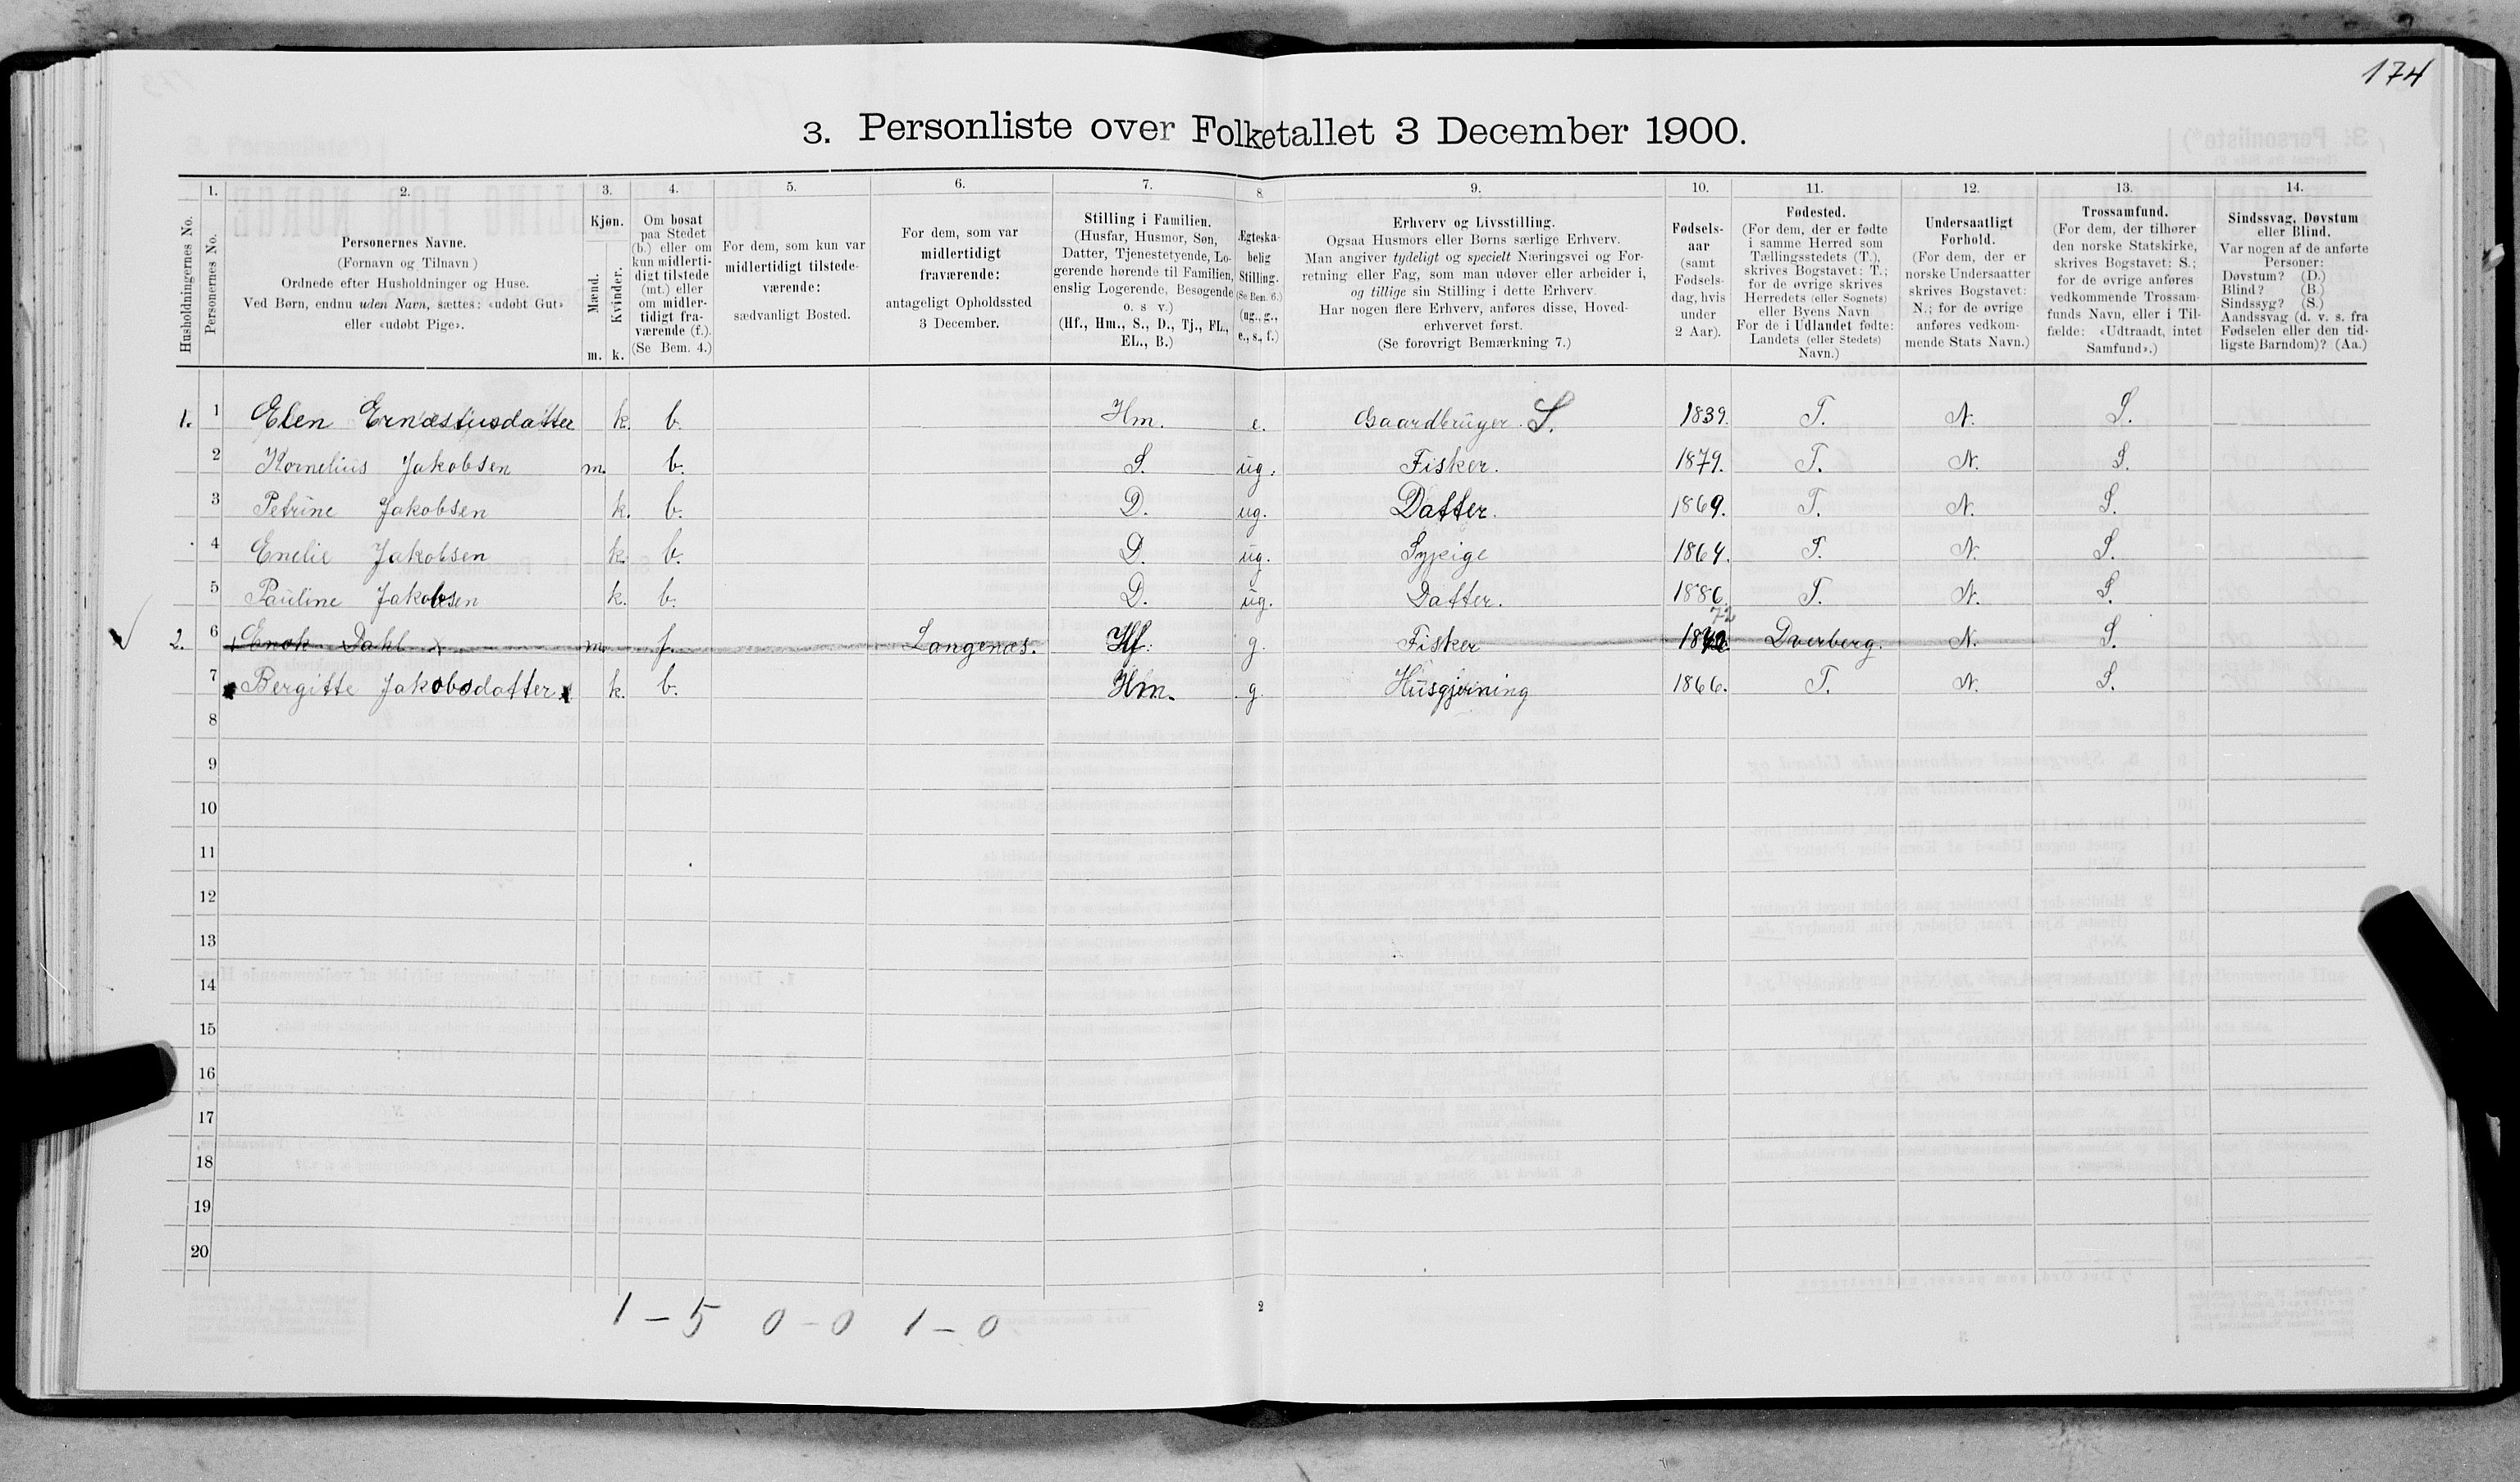 174
3. Personliste over Folketallet 3 December 1900.
1. 2. 3. 4. 5. 6. 7. 8. 9. 10. 11. 12. 13. 14.
Husholdningernes No.
Personernes No.
Personernes Navne.
(Fornavn og Tilnavn)
Ordnede efter Husholdninger og Huse.
Ved Børn, endnu uden Navn, sættes: «udøbt Gut»
eller «udøbt Pige».
Kjøn.
Mænd.
Kvinder.
m. k.
Om bosat
paa Stedet
(b.) eller om
kun midlerti-
digt tilstede
(mt.) eller
om midler-
tidigt fra-
værende (f.).
(Se Bem. 4.)
For dem, som kun var
midlertidigt tilstede-
værende:
sædvanligt Bosted.
For dem, som var
midlertidigt
fraværende:
antageligt Opholdssted
3 December.
Stilling i Familien.
(Husfar, Husmor, Søn,
Datter, Tjenestetyende, Lo-
gerende hørende til Familien,
enslig Logerende, Besøgende
o. s v.)
(Hf., Hm., S., D., Tj., FL.,
EL., B.)
Ægteska-
belig
Stilling.
(Se Bem. 6.)
(ug., g.,
e., s., f.)
Erhverv og Livsstilling.
Ogsaa Husmors eller Børns særlige Erhverv.
Man angiver tydeligt og specielt Næringsvei og For-
retning eller Fag, som man udøver eller arbeider i,
og tillige sin Stilling i dette Erhverv.
Har nogen flere Erhverv, anføres disse, Hoved-
erhvervet først.
(Se forøvrigt Bemærkning 7.)
Fødsels-
aar
(samt
Fødsels-
dag, hvis
under
2 Aar).
Fødested.
(For dem, der er fødte
i samme Herred som
Tællingsstedets (T.),
skrives Bogstavet: T.;
for de øvrige skrives
Herredets (eller Sognets)
eller Byens Navn
For de i Udlandet fødte:
Landets (eller Stedets)
Navn.)
Undersaatligt
Forhold.
(For dem, der er
norske Undersaatter
skrives Bogstavet:
N.; for de øvrige
anføres vedkom-
mende Stats Navn.)
Trossamfund.
(For dem, der tilhører
den norske Statskirke,
skrives Bogstavet: S.;
for de øvrige anføres
vedkommende Trossam-
funds Navn, eller i Til-
fælde: «Udtraadt, intet
Samfund».)
Sindssvag, Døvstum
eller Blind.
Var nogen af de anførte
Personer:
Døvstum? (D.)
Blind? (B.)
Sindssyg? (S.)
Aandssvag (d. v. s. fra
Fødselen eller den tid-
ligste Barndom)? (Aa.)
1. 1 Elen Ernæstusdatter k. b. Hm. e. Gaardbruger. S. 1839. T. N. S.
2 Kornelius Jakobsen m. b. S. ug. Fisker. 1879. T. N. S.
3 Petrine Jakobsen k. b. D. ug. Datter. 1869. T. N. S.
4 Enelie Jakobsen k. b. D. ug. Sypige 1864. T. N. S.
5 Pauline Jakobsen k. b. D. ug. Datter. 1886. T. N. S.
72
2. 6 Enok Dahl x m. f. Langenæs. Hf. g. Fisker Dverberg. N. S.
7 Bergitte Jakobsdatter. k. b. Hm. g. Husgjerning 1866. T. N. S.
8
9
10
11
12
13
14
15
16
17
18
19
20
1 – 5 0 – 0 1 – 0
2